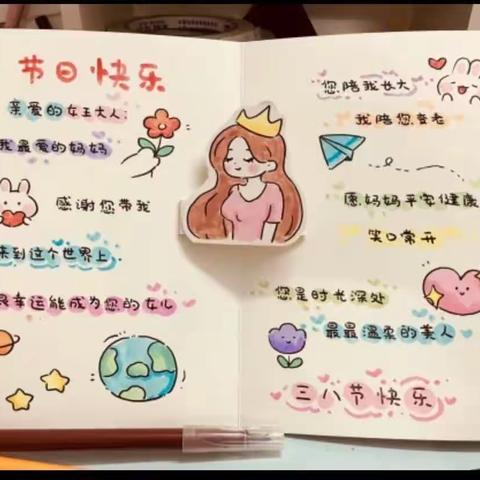 节日快乐
亲爱的女王大人:
我最爱的妈妈
感谢您带我
来到这个世界上.
很幸运能成为您的女儿
您陪我长大
我陪您变老
愿妈妈平安健康
笑口常开
您是时光深处
最最温柔的美人
三八节快乐